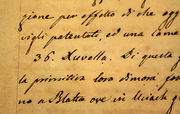 gione per effetto di che agg
vigli patentato, ed una came
36. Xuvella. Di questa f
la primitiva loro dimora fon
no a Blatta ove in Uliach g